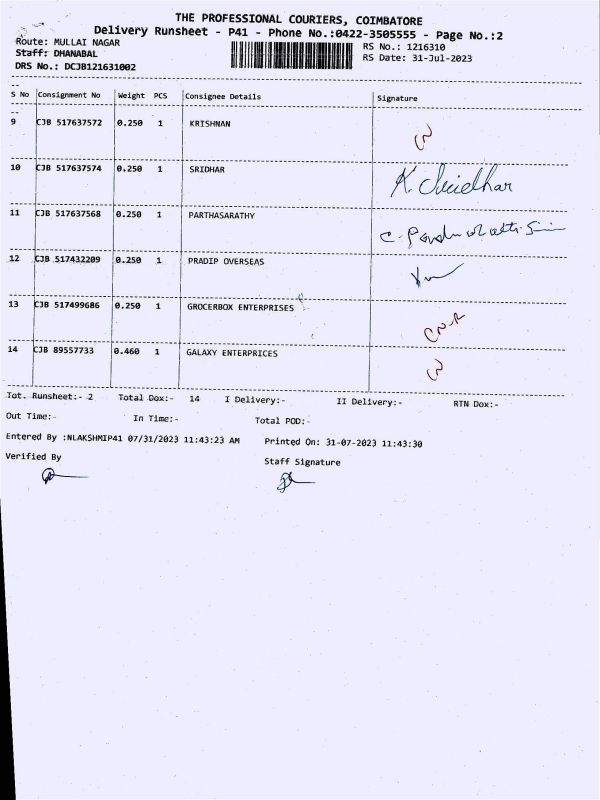 THE PROFESSIONAL COURIERS, COIMBATORE
Delivery Runsheet - P41 - Phone No.:0422-3505555 - Page No.:2
Route: MULLAI NAGAR RS No.: 1216310
Staff: DHANABAL RS Date: 31-Jul-2023
DRS No.: DCJB121631002
S No Consignment No Weight PCS Consignee Details Signature
9 CJB 517637572 0.250 1 KRISHNAN
10 CJB 517637574 0.250 1 SRIDHAR
11 CJB 517637568 0.250 1 PARTHASARATHY
12 CJB 517432209 0.250 1 PRADIP OVERSEAS
13 CJB 517499686 0.250 1 GROCERBOX ENTERPRISES
14 CJB 89557733 0.460 1 GALAXY ENTERPRICES
Tot. Runsheet:- 2 Total Dox:- 14 I Delivery:- II Delivery:- RTN Dox:-
Out Time:- In Time:- Total POD:-
Entered By :NLAKSHMIP41 07/31/2023 11:43:23 AM Printed On: 31-07-2023 11:43:30
Verified By Staff Signature